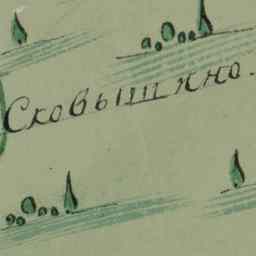 Сковышкно.